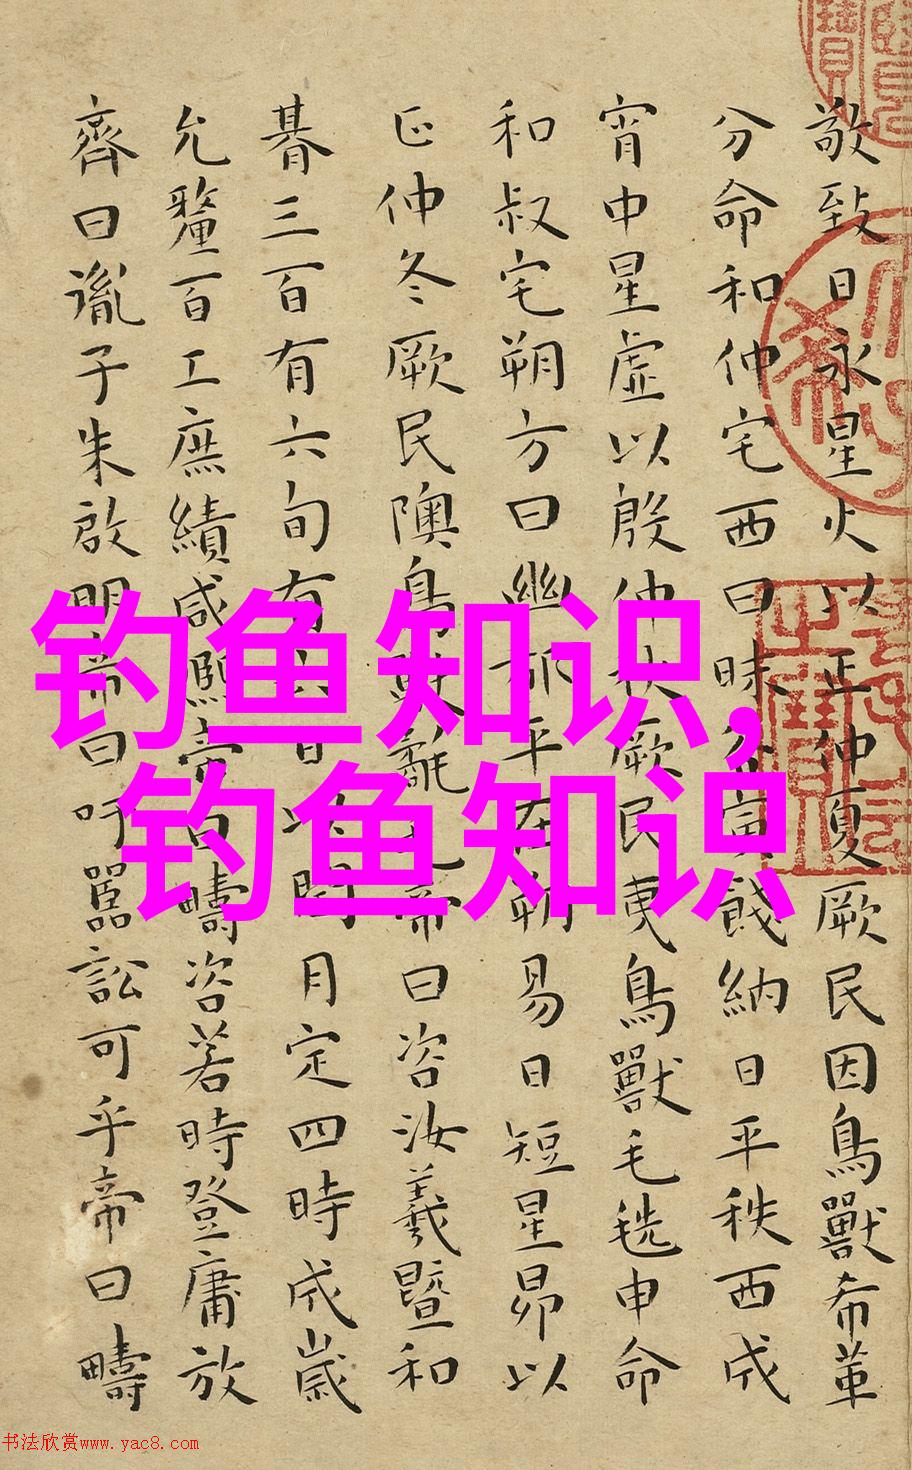 敬致日永星火以正仲夏厥民因鳥獸希革
分命和仲宅西曰昧谷寅餞納日平秩西成
宵中星虛以殷仲秋厥民夷鳥獸毛毨申命
和叔宅朔方曰幽都平在朔易日短星昴以
正仲冬厥民隩鳥獸氄毛帝曰咨汝羲暨和
朞三百有六旬有六日以閏月定四時成歲
允釐百工庶績咸熙帝曰疇咨若時登庸放
齊曰胤子朱啟明帝曰吁嚚訟可乎帝曰疇
钓鱼知识,
钓鱼知识
书法欣赏www.yac8.com